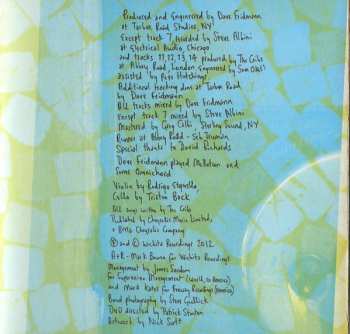 Produced and Engineered by Dave Fridmann
at Tarbox Road Studios, NY
Except track 7, recorded by Steve Albini
at Electrical Audio, Chicago
and tracks 11, 12, 13, 14 produced by The Cribs
at Abbey Road, London, engineered by Sam
assisted by Pete Hutchings
Additional tracking done at Tarbox Road
by Dave Fridmann
All tracks mixed by Dave Fridmann
Except track 7 mixed by Steve Albini
Mastered by Greg Calbi Sterling Sound, NY
at Abbey Road - Seb
Special thanks to David Richards
Dave Fridmann played Mellotron and
some Omnichord
Violin by Rodrigo
Cello by Triston Bock
All songs written by The Cribs
Published by Chrysalis Music Limited,
a BMG Chrysalis Company
Ⓟ and © Wichita Recordings 2012
A+R - Mark Bowen for Wichita Recordings
Management by James Sandom
for Supervision Management (world, ex America)
and Mark Kates for Fenway Recordings (America)
Band photography by Steve Gullick
DVD directed by Patrick
Artwork by Nick Scott